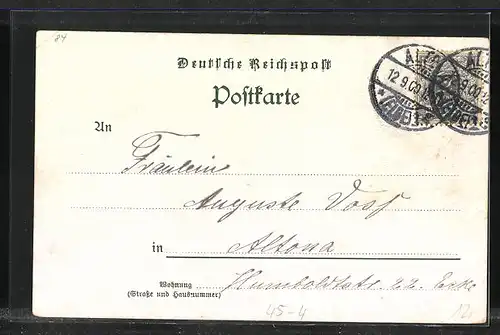 84
Deutsche Reichspost
Postkarte
An
Fräulein
Auguste Voss
in Altona
Wohnung Humboldtstr. 22. Ecke
(Straße und Hausnummer)
45-4
ALT
12.9.00